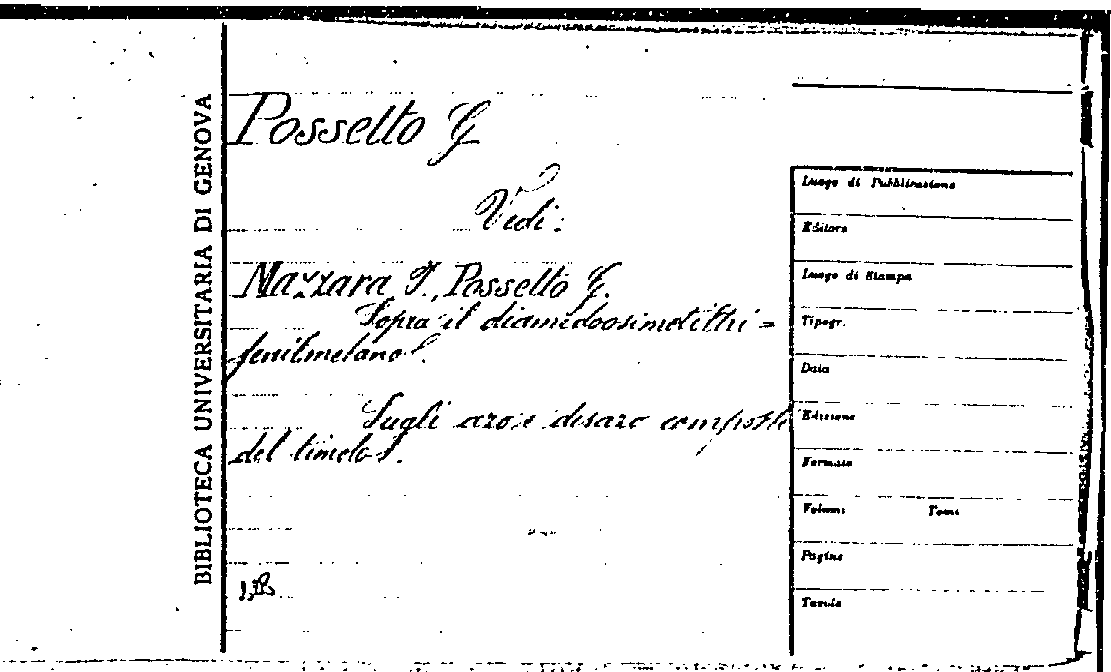 BIBLIOTECA UNIVERSITARIA DI GENOVA
Possetto G
Vedi:
Mazzara G., Possetto G.
Sopra il diamidoosimetiltri =
fenilmetano.
Sugli azo e disazo composti
del timolo.
Luogo di Pubblicazione
Editore
Luogo di Stampa
Tipogr.
Data
Edizione
Formato
Volumi Tomi
Pagine
Tavole